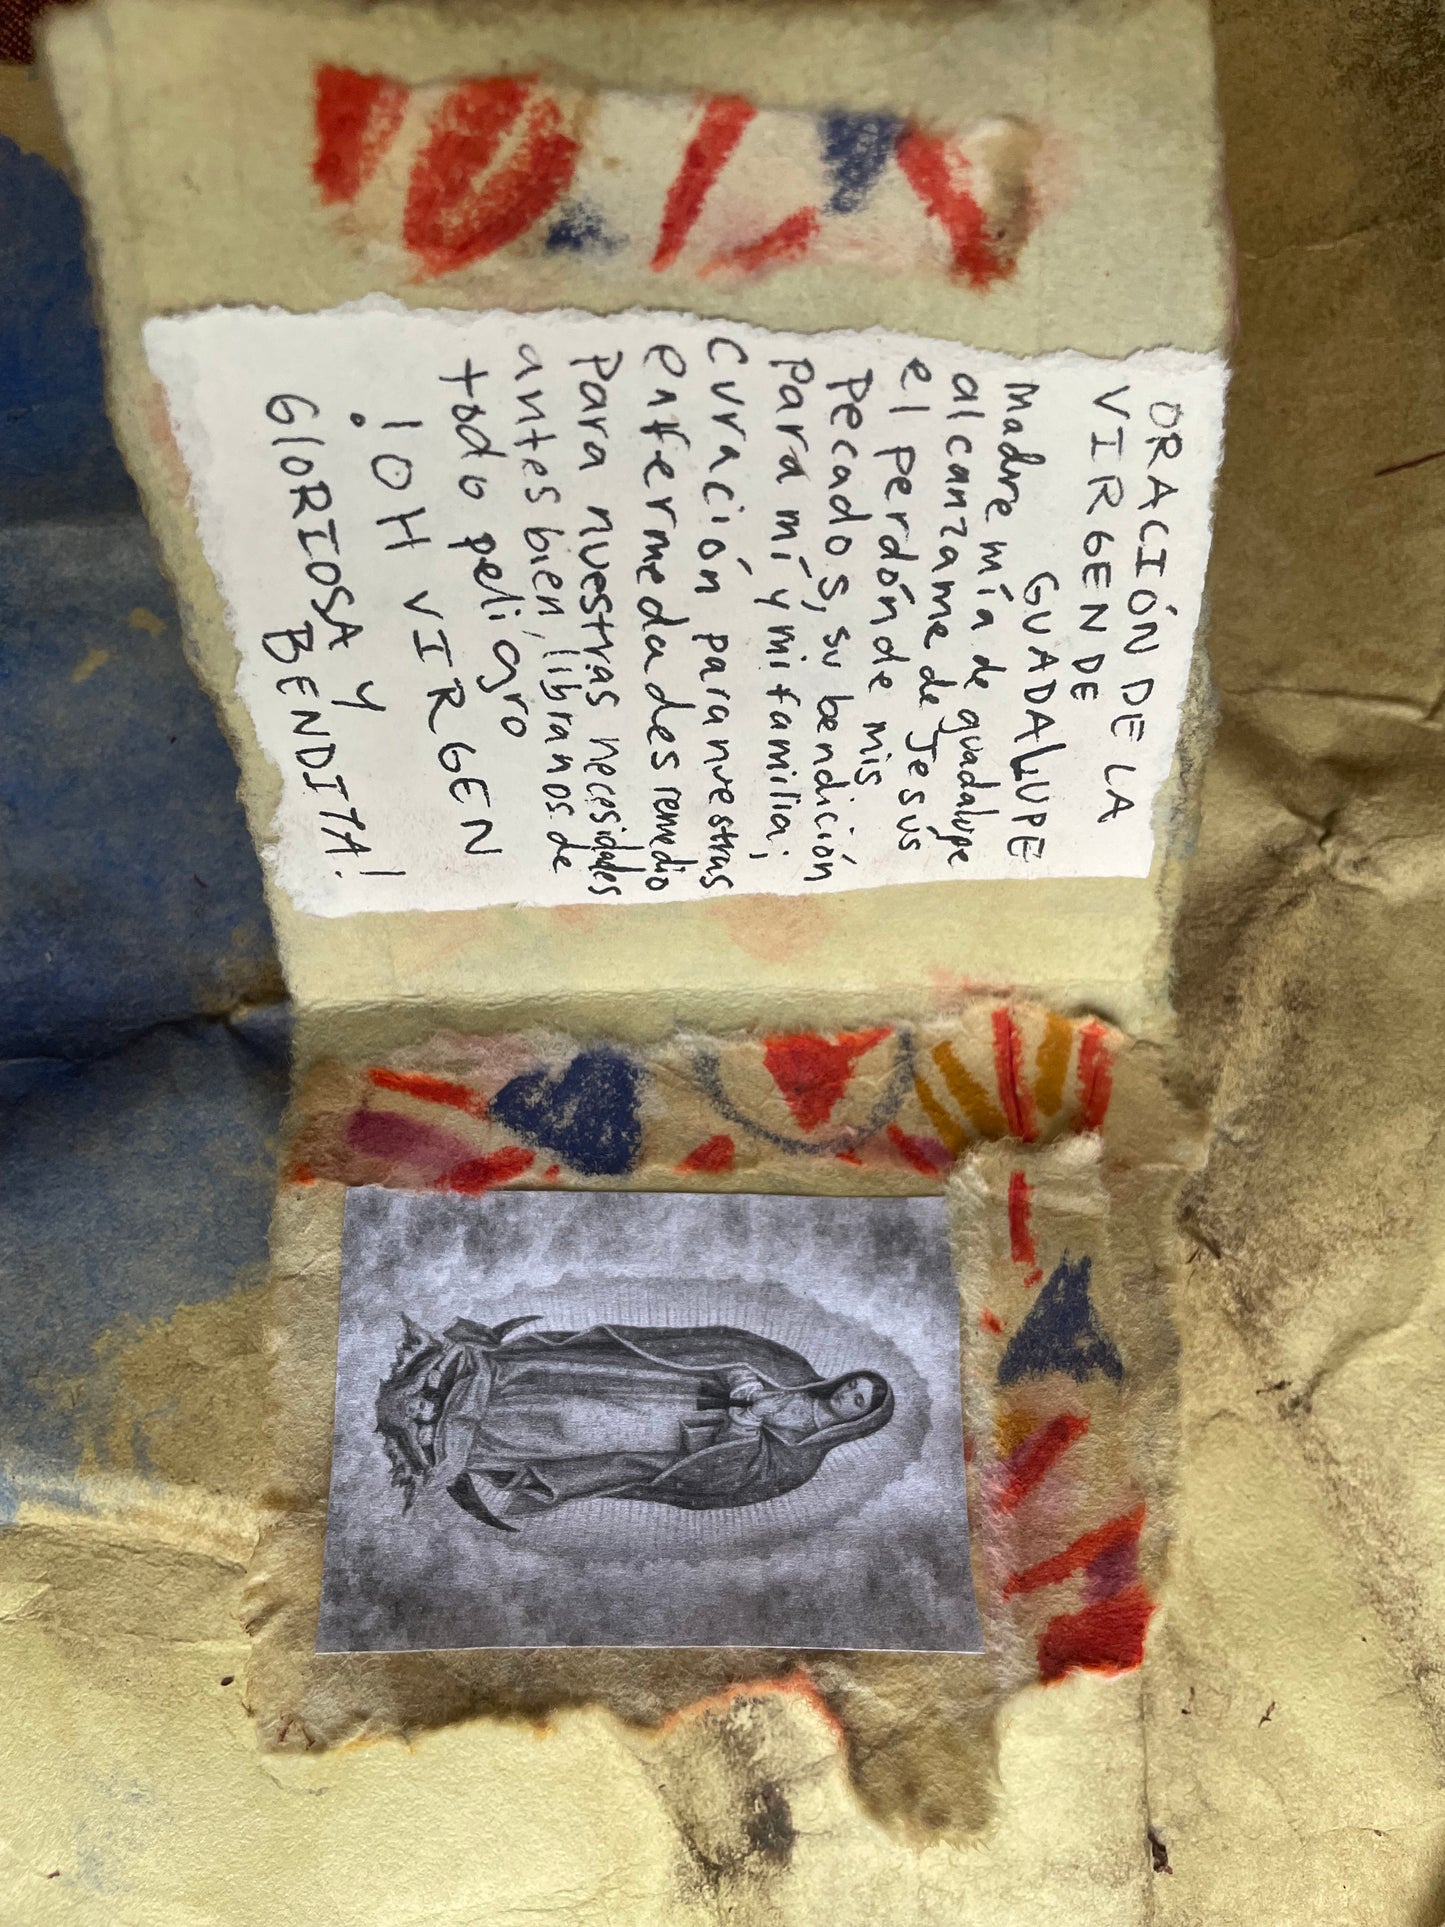 ORACIÓN DE LA
VIRGEN DE
GUADALUPE
Madre mía de guadalupe
alcanzame de Jesus
el perdón de mis
pecados, su bendición
para mí y mi familia;
curación para nuestras
enfermedades remedio
para nuestras necesidades
antes bien, libranos de
todo peligro
¡OH VIRGEN
GLORIOSA Y
BENDITA!